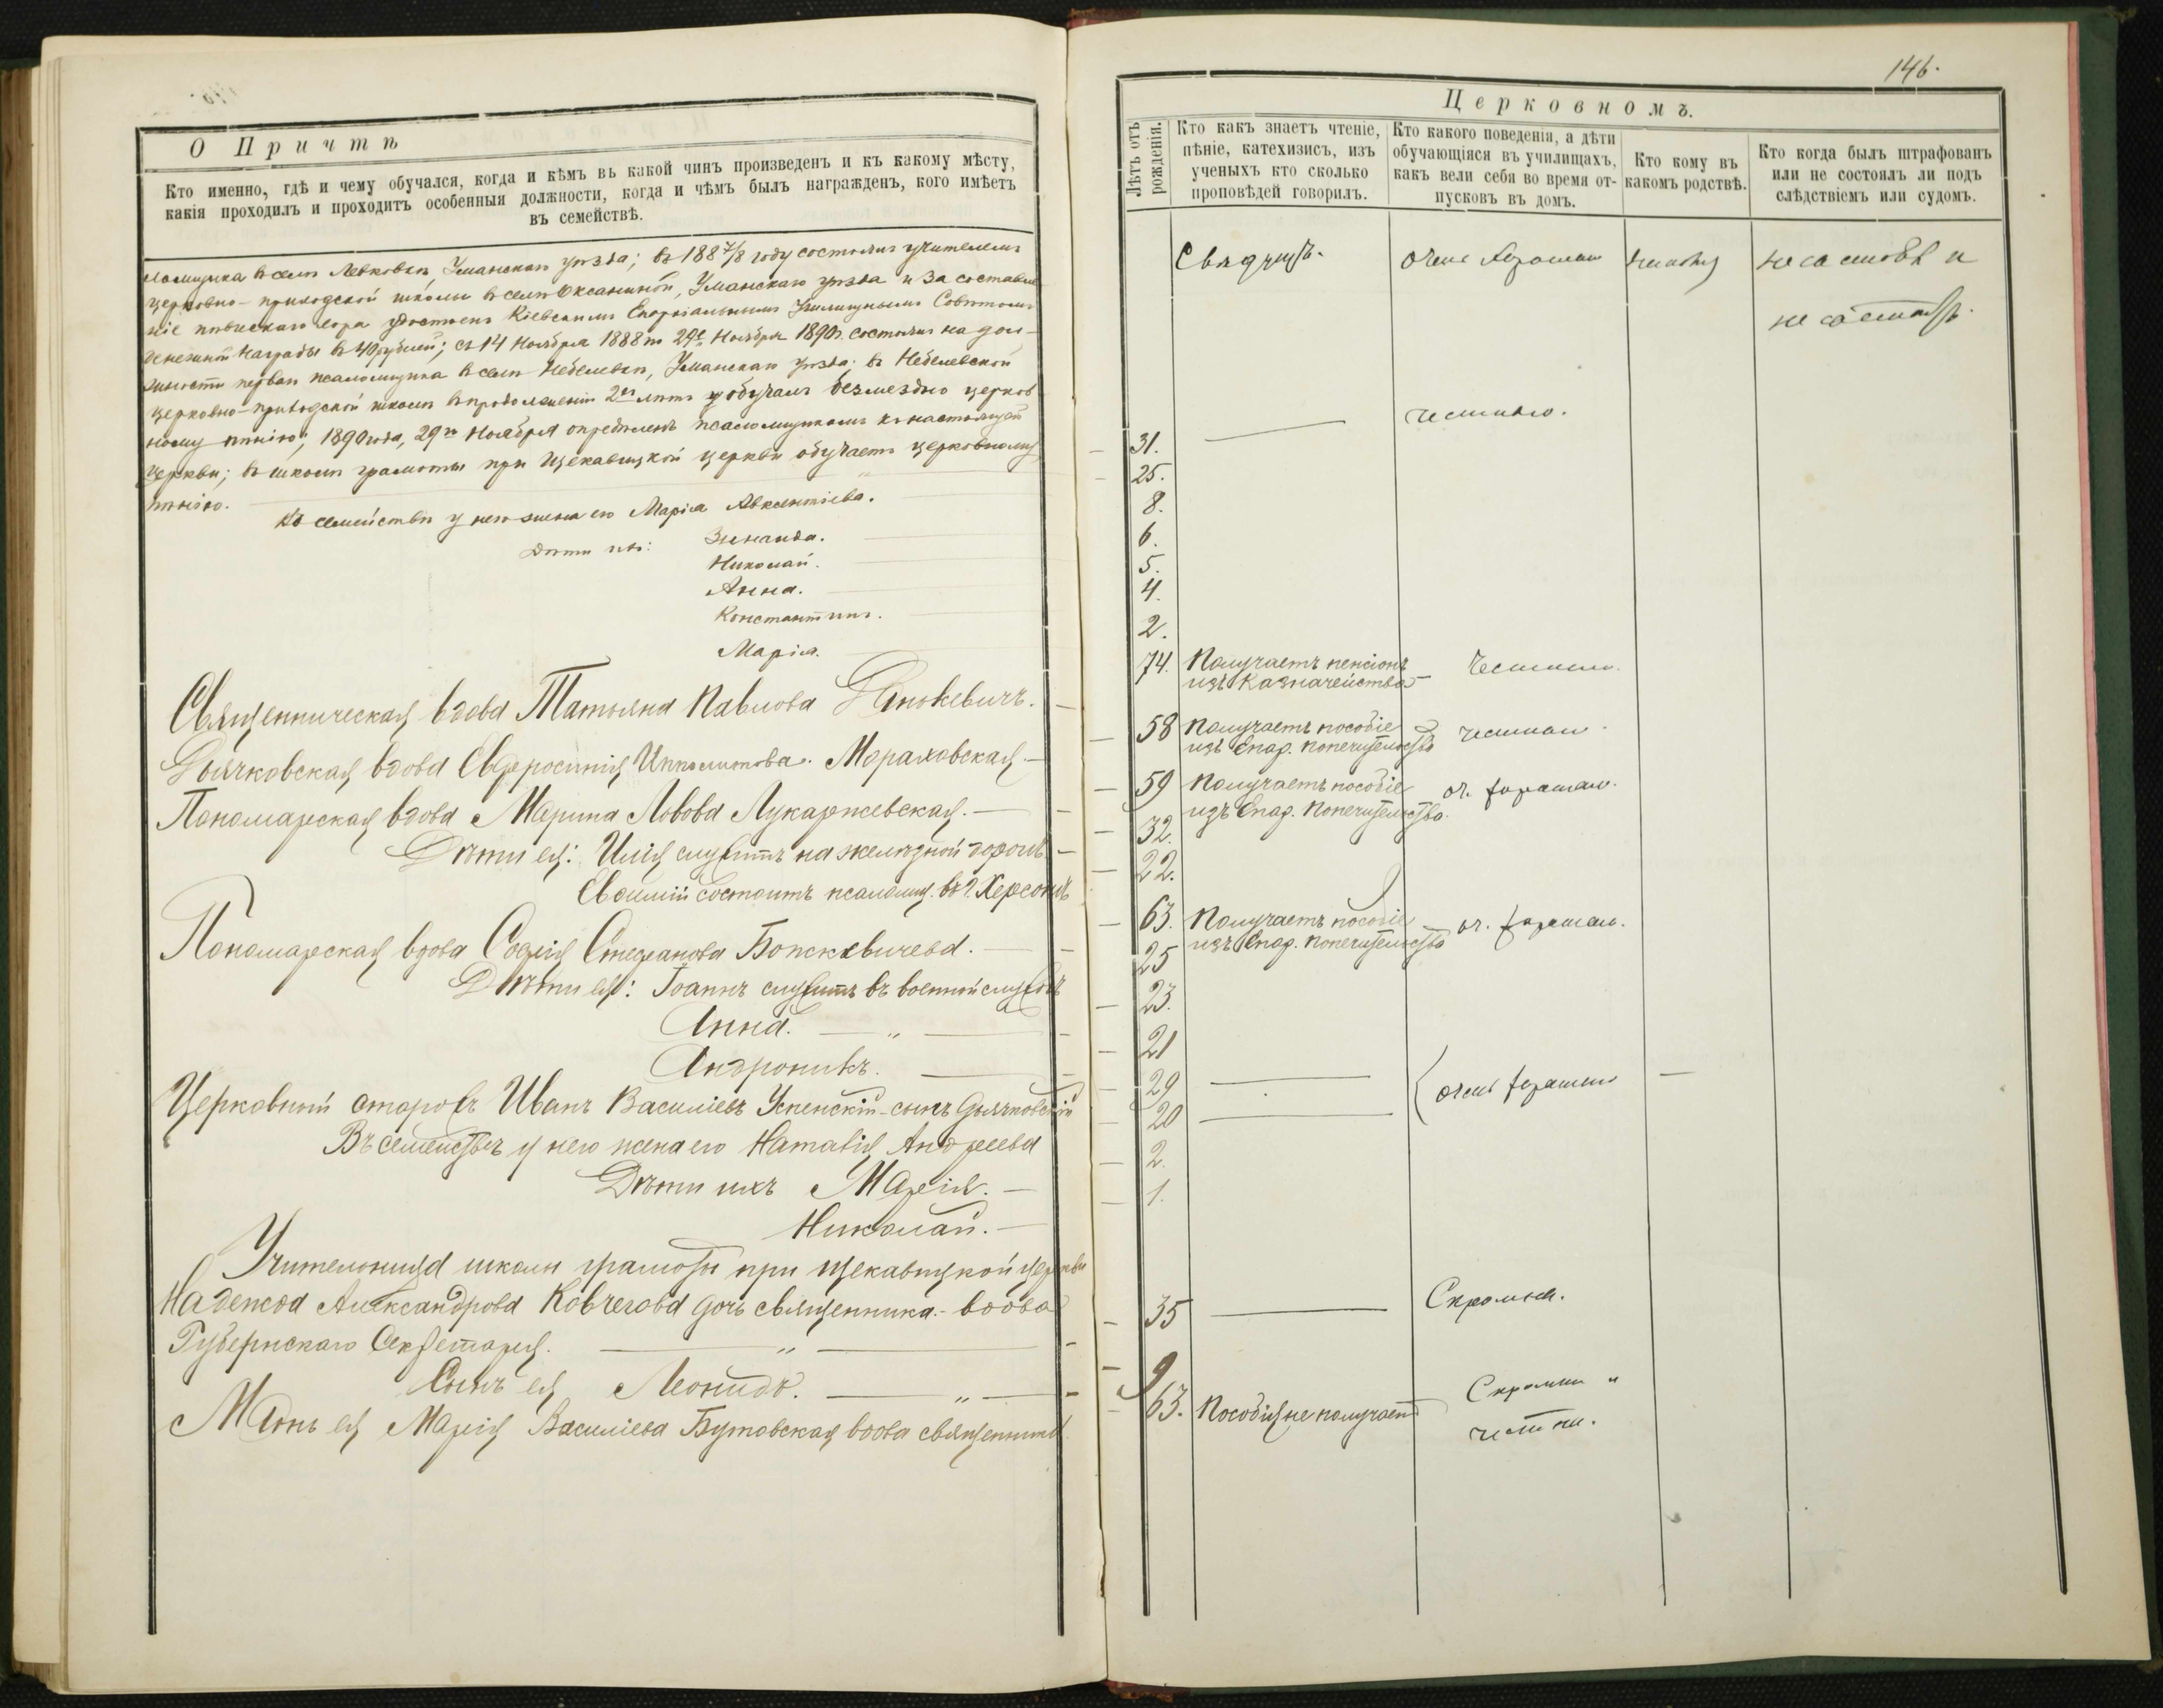 О Причтѣ
Кто именно, гдѣ и чему обучался, когда и кѣмъ въ какой чинъ произведенъ и къ какому мѣсту,
какія проходилъ и проходитъ особенныя должности, когда и чѣмъ былъ награжденъ, кого имѣетъ
въ семействѣ.
ломщика въ селѣ Левковкѣ, Уманскаго уѣзда; въ 1887/8 году состоялъ учителемъ
церковно-приходской школы въ селѣ Оксаниной, Уманскаго уѣзда и за составле
ніе пѣвческаго хора удостоенъ Кіевскимъ Епархіальнымъ Училищнымъ Совѣтомъ
денежной награды въ 40 рублей; съ 14 Ноября 1888 по 29е Ноября 1890 г. состоялъ на дол-
жности перваго псаломщика въ селѣ Небелевкѣ, Уманскаго уѣзда; въ Небелевской
церковно-приходской школѣ въ продолженіи 2хъ лѣтъ обучалъ безмездно церков
ному пѣнію; 1890 года, 29го Ноября опредѣленъ псаломщикомъ къ настоящей
церкви; въ школѣ грамоты при Щекавицкой церкви обучаетъ церковному
пѣнію.
Въ семействѣ у него жена его Марія Авксентіева.
Дѣти ихъ: Зинаида.
Николай.
Анна.
Константинъ.
Марія.
Священническая вдова Татьяна Павлова
Дьячковская вдова Евфросинія Ипполитова Мораховская
Пономарская вдова Марина Львова Лукаржевская.
Дѣти ея: Илія служитъ на желѣзной дорогѣ
Евѳимій состоитъ псаломщ. въ г. Херсонѣ
Пономарская вдова Софія Стефанова
Дѣти ея: Іоаннъ служитъ въ военной службѣ
Анна. — „ —
Андроникъ.
Церковный староста Иванъ Василіевъ Успенскій - сынъ дьячковскій
Въ семействѣ у него жена его Наталія Андреева
Дѣти ихъ Марія.
Николай.
Учительница школы грамоты при Щекавицкой церкви
Надежда Александрова Ковчегова дочь священника - вдова
Губернскаго Секретаря. — „ —
Сынъ ея Леонидъ. — „ —
Мать ея Марія Василіева Бутовская вдова священника
146.
Церковномъ.
Лѣтъ отъ
рожденія.
Кто какъ знаетъ чтеніе,
пѣніе, катехизисъ, изъ
ученыхъ кто сколько
проповѣдей говорилъ.
Кто какого поведенія, а дѣти
обучающіяся въ училищахъ,
какъ вели себя во время от-
пусковъ въ домъ.
Кто кому въ
какомъ родствѣ.
Кто когда былъ штрафованъ
или не состоялъ ли подъ
слѣдствіемъ или судомъ.
очень хорошаго
не состоялъ.
31. — честнаго.
25.
8.
6.
5.
4.
2.
74. Получаетъ пенсіонъ
изъ Казначейства — честнаго.
58 Получаетъ пособіе
изъ Епар. попечительства честнаго.
59 Получаетъ пособіе
изъ Епар. Попечительства. оч. хорошаго.
32.
22.
63. Получаетъ пособіе
изъ Епар. попечительства оч. хорошаго.
25
23.
21
29 —
20 — очень хорошаго —
2.
1.
35 — Скромная.
9
63. Пособія не получаетъ Скромна и
честна.